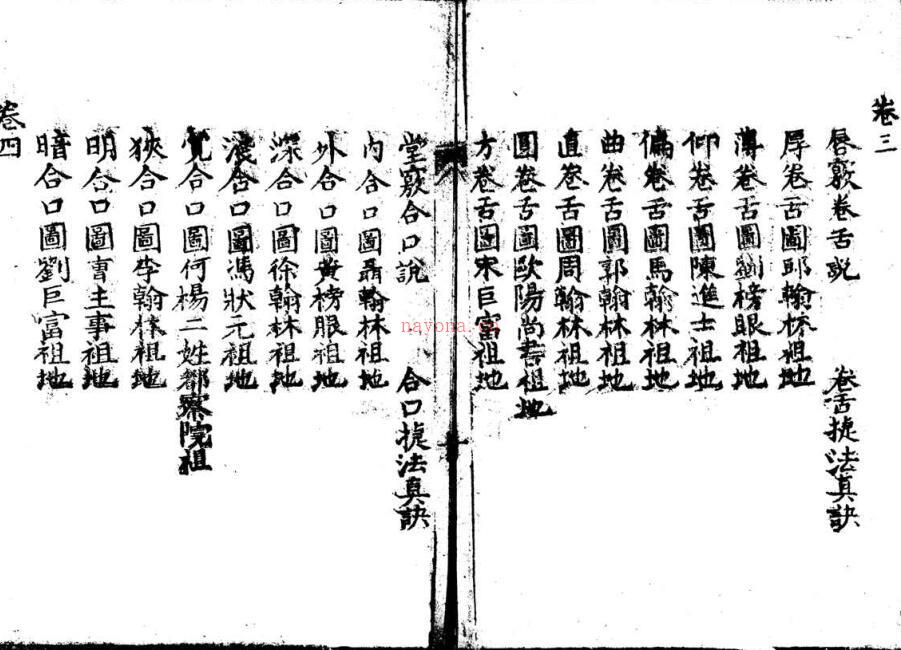 卷三
唇竅卷舌説　卷舌捷法真訣
厚卷舌圖邱翰林祖地
薄卷舌圖劉榜眼祖地
仰卷舌圖陳進士祖地
偏卷舌圖馬翰林祖地
曲卷舌圖郭翰林祖地
直卷舌圖周翰林祖地
圓卷舌圖歐陽尚書祖地
方卷舌圖宋巨富祖地
堂竅合口說　合口捷法真訣
內合口圖聶翰林祖地
外合口圖黃榜眼祖地
深合口圖徐翰林祖地
淺合口圖馮狀元祖地
寬合口圖何楊二姓都察院祖
狹合口圖李翰林祖地
明合口圖曹主事祖地
暗合口圖劉巨富祖地
卷四
nayona.cn